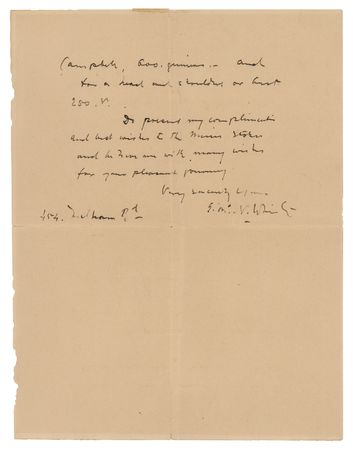 Campbell, 200. guineas. — and
for a head and shoulders or bust
200. 
Do present my compliments
and best wishes to the Misses
and with many wishes
for your pleasant journey
Very sincerely yours
454. Fulham Rd